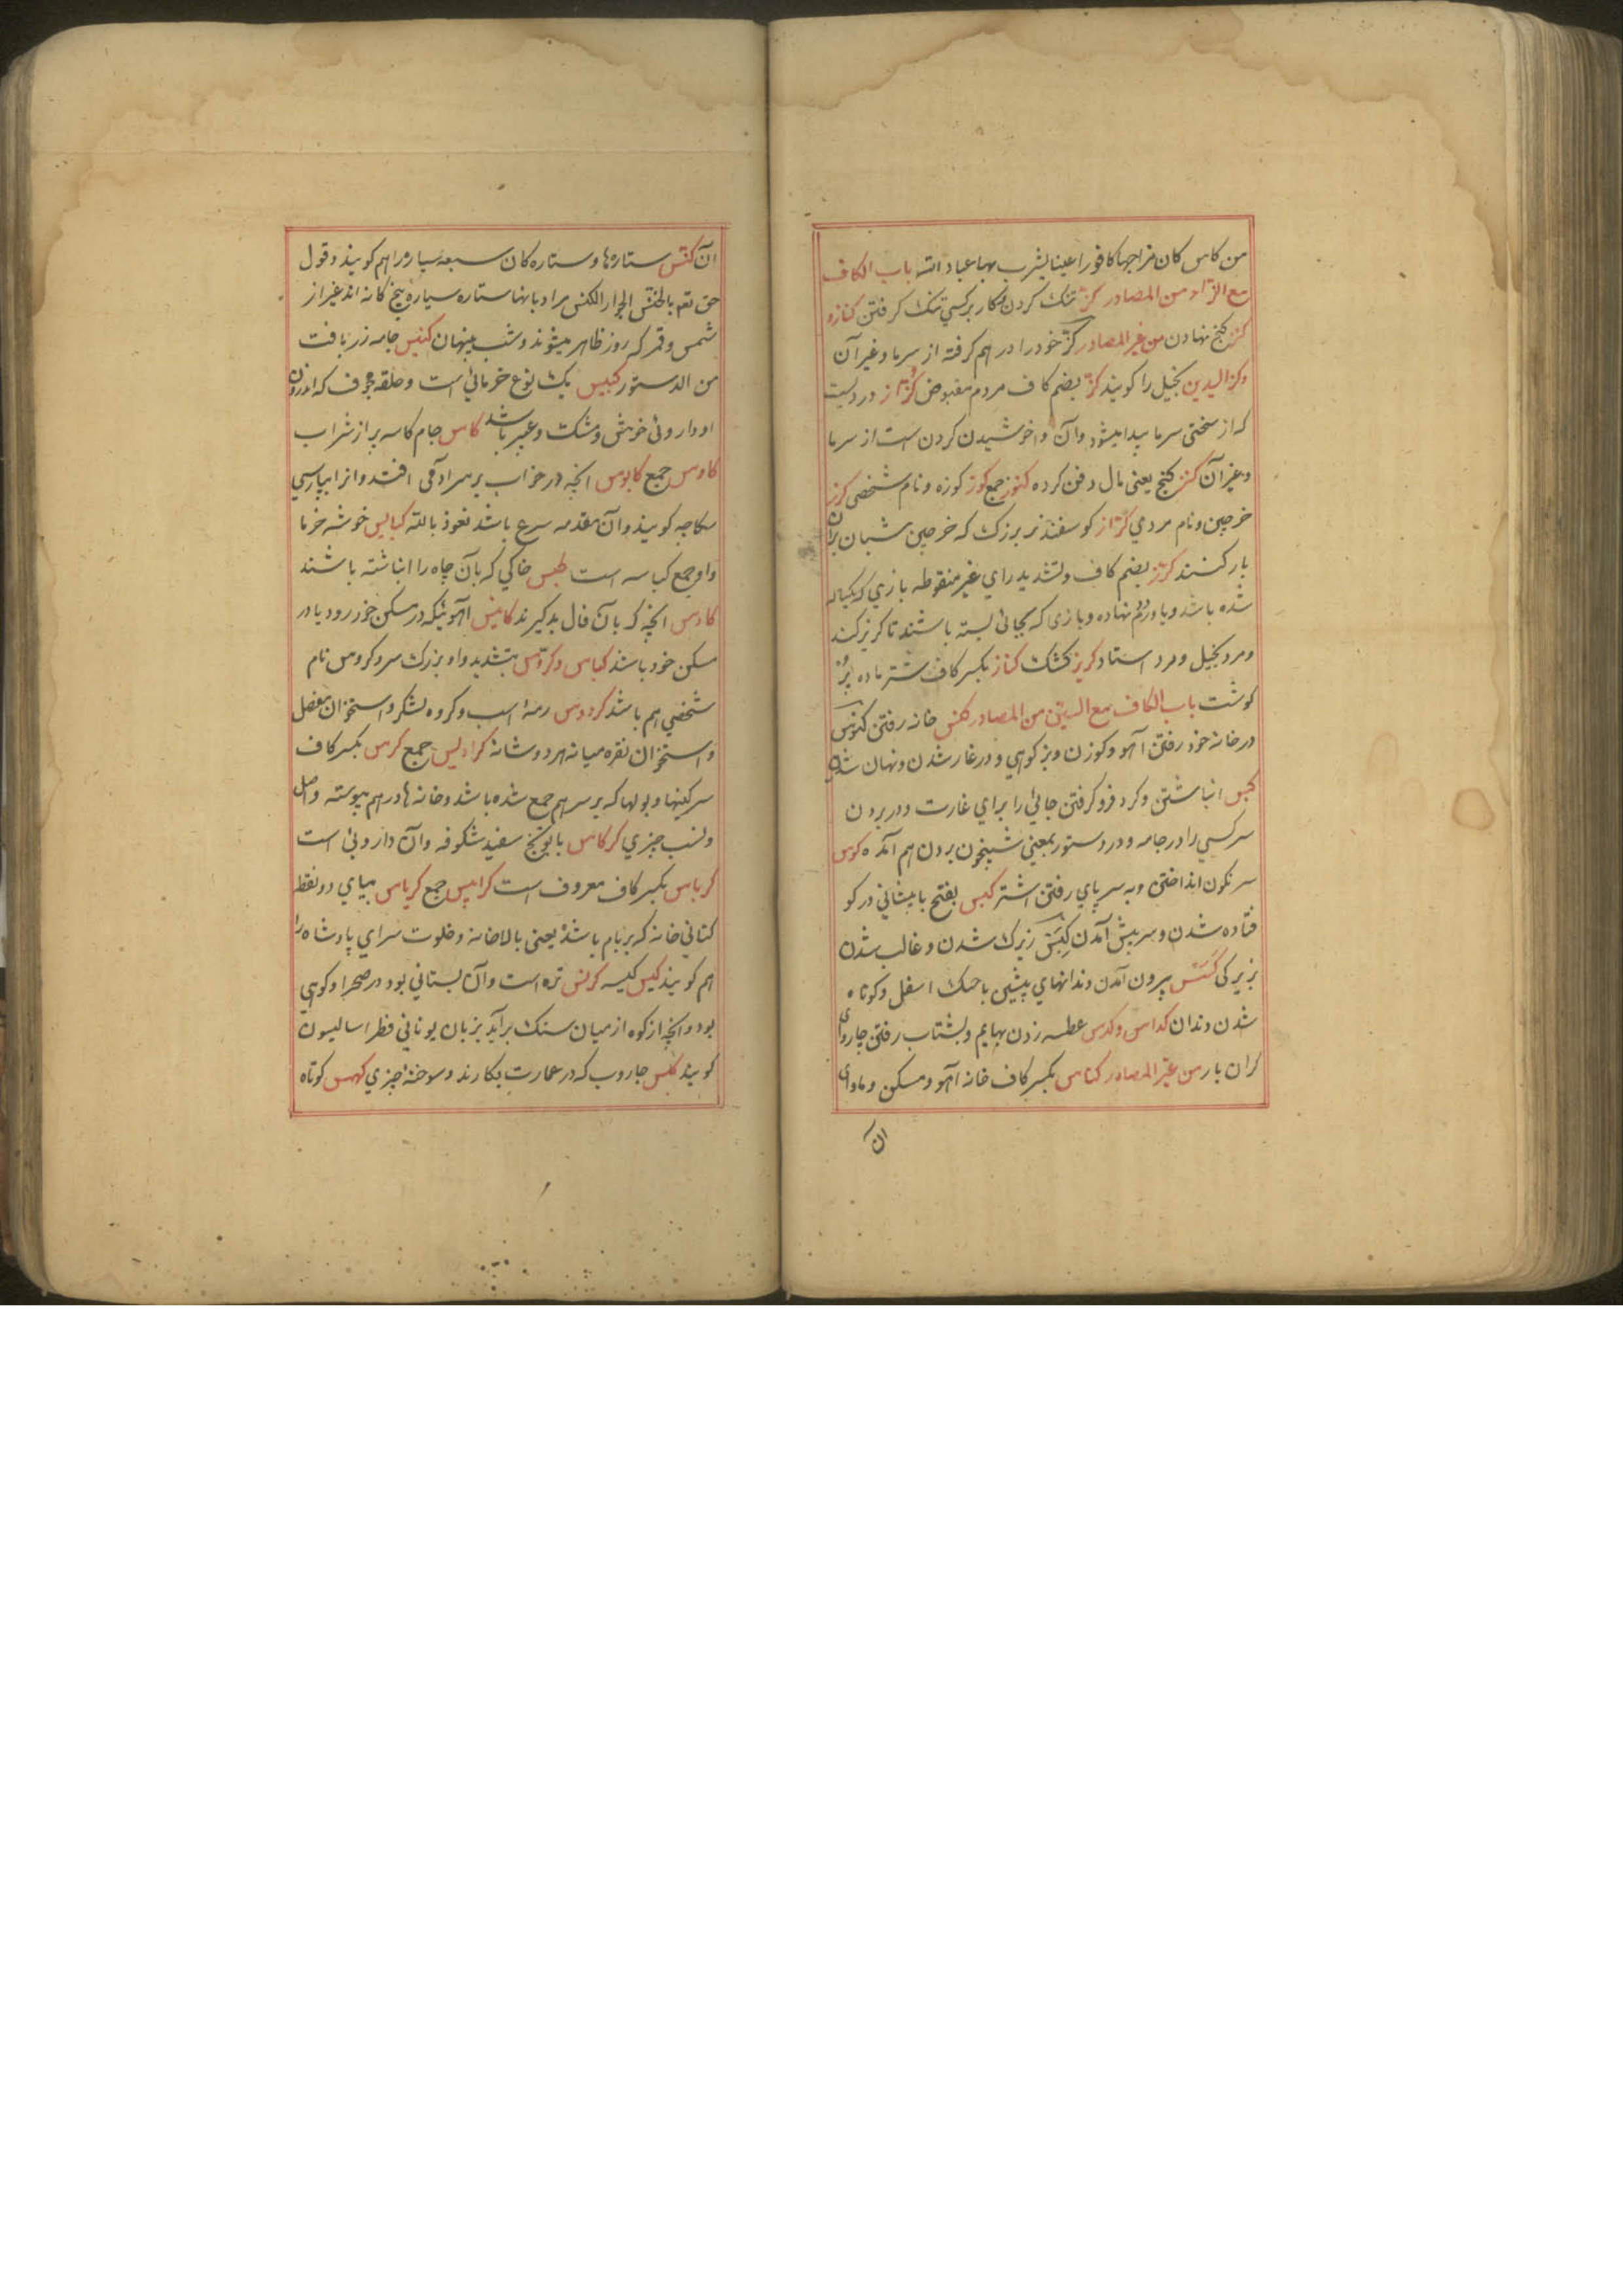 من کاس کان مزاجها کافورا عینا یشرب بها عباد الله باب الکاف
مع الزاء من المصادر کزّ تنک کردن و کار بر کسی تنک کرفتن کنازه
کنز کنج نهادن من غیر المصادر کزّ خود را درهم کرفته از سرما و غیر آن
و کز الیدین بخیل را کویند کزّ بضم کاف مردم مقبوض کزاز دردیست
که از سختی سرما پیدا میشود و آن واخوشیدن کردن است از سرما
و غیر آن کنز کنج یعنی مال دفن کرده کنوز جمع کوز کوزه و نام شخصی کرز
خرجین و نام مردمی کرّاز کوسفند نر بزرک که خرجین شبان بران
بار کنند کرّز بضم کاف و تشدید رای غیر منقوطه بازی که یکساله
شده باشد و پا در دوم نهاده و بازی که بجائی بسته باشند تا کریز کند
و مرد بخیل و مرد استاد کریز کشک کناز بکسر کاف شتر ماده پر
کوشت باب الکاف مع السین من المصادر کنس خانه رفتن کنوس
در خانه خود رفتن آهو و کوزن و بز کوهی و در غار شدن و نهان شدن
کبس انباشتن و کرد فرو کرفتن جائی را برای غارت و در بردن
سر کسی را در جامه و در دستور بمعنی شبیخون بردن هم آمده کوس
سرنکون انداختن و به سر پای رفتن اشتر کبس بفتح با پیشانی در کو
فتاده شدن و سر پیش آمدن کیس زیرک شدن و غالب شدن
بزیرکی کسس بیرون آمدن دندانهای پیشین با حنک اسفل و کوتاه
شدن دندان کداس و کدس عطسه زدن بهایم و بشتاب رفتن چاروای
کران بار من غیر المصادر کناس بکسر کاف خانه آهو و مسکن و ماوای
آن
آن کنّس ستاره‌ها و ستاره کان سبعه سیاره را هم کویند و قول
حق تعم بالخنّس الجوار الکنس مراد بانها ستاره سیاره پنج کانه اند غیر از
شمس و قمر که روز ظاهر میشوند و شب پنهان کنیس جامه زربافت
من الدستور کبیس یک نوع خرمائی است و حلقه مجوف که اندرون
او داروئی خوش و مشک و عبیر باشد کاس جام کاسه پر از شراب
کاوس جمع کابوس آنچه در خواب بر سر آدمی افتد و انرا بپارسی
سکاچه کویند و آن مقدمه صرع باشد نعوذ بالله کبایس خوشه خرما
و او جمع کباسه است کبس خاکی که بآن چاه را انباشته باشند
کادس آنچه که بآن فال بد کیرند کانس آهوئیکه در مسکن خود رود یا در
مسکن خود باشد کباس و کروّس بتشدید واو بزرک سر و کروس نام
شخصی هم باشد کردوس رمه اسب و کروه لشکر و استخوان مفصل
و استخوان نقره میانه هر دو شانه کرادیس جمع کرس بکسر کاف
سرکینها و بولها که بر سر هم جمع شده باشد و خانه‌ها در هم پیوسته و اصل
و نسب چیزی کرکاس بابونج سفید شکوفه و آن داروئی است
کرباس بکسر کاف معروف است کرابیس جمع کریاس بیای دو نقطه
کتانی خانه که بر بام باشد یعنی بالاخانه و خلوت سرای پادشاه را
هم کویند کیس کیسه کرفس تره است و آن بستانی بود در صحرا و کوهی
بود و آنچه از کوه از میان سنک برآید بزبان یونانی فطراسالیسون
کویند کلس جاروب که در عمارت بکارند و سوخته چیزی کهمس کوتاه